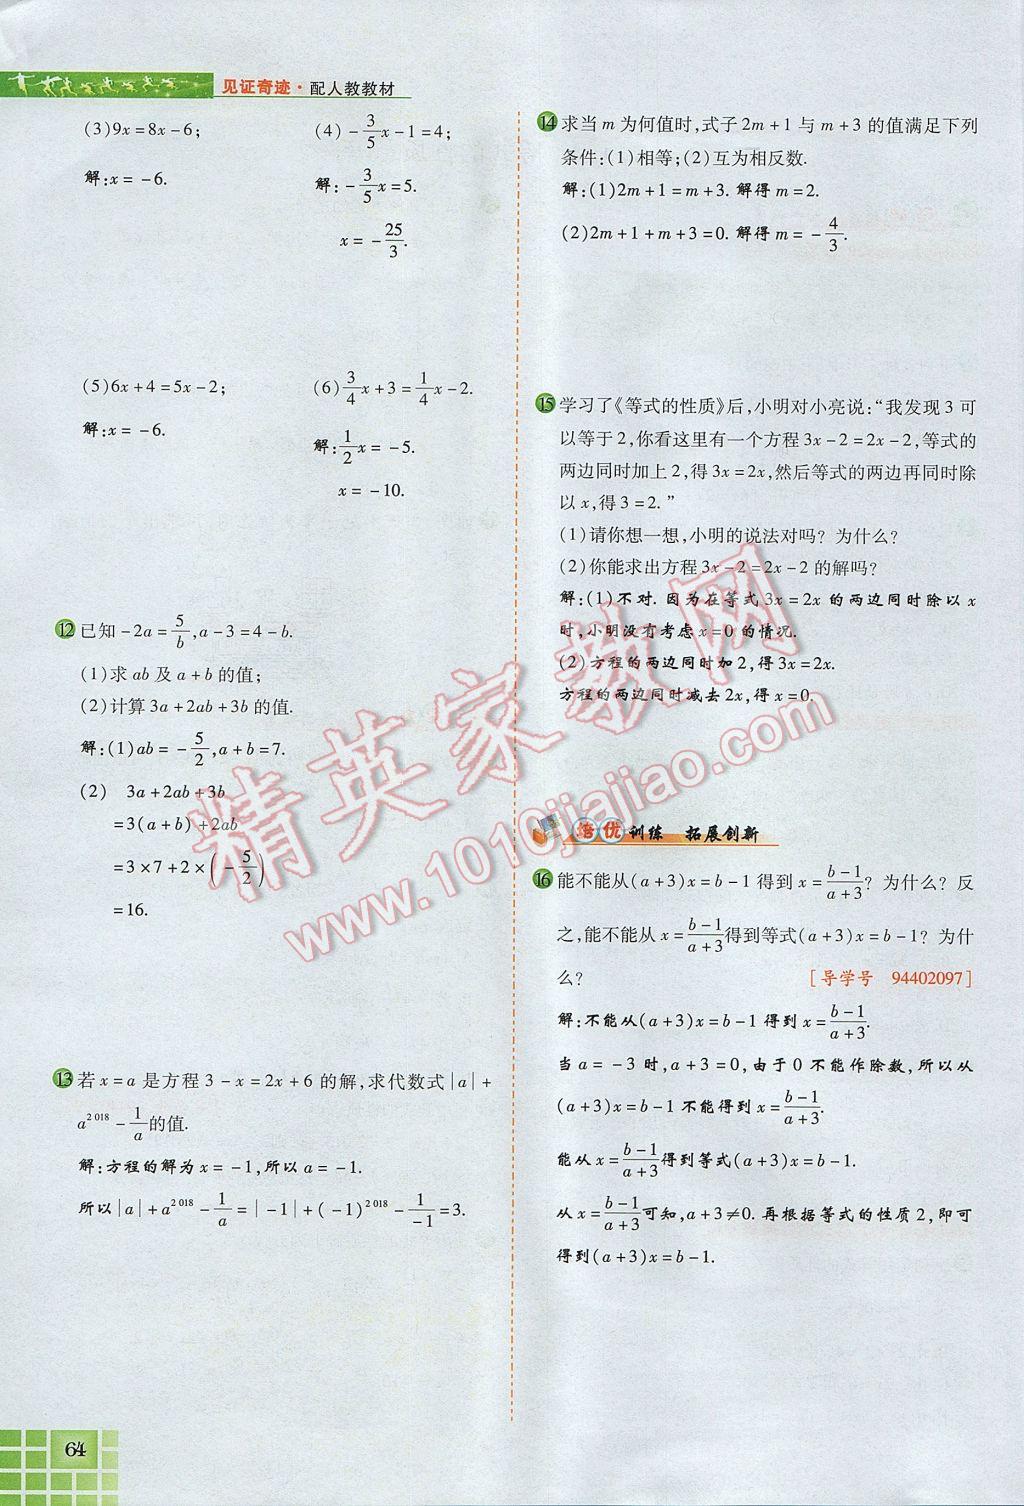 见证奇迹·配人教教材
(3)9x=8x-6;
(4)-3/5x-1=4;
解:x=-6.
解:-3/5x=5.
x=-25/3.
(5)6x+4=5x-2;
(6)3/4x+3=1/4x-2.
解:x=-6.
解:1/2x=-5.
x=-10.
12 已知-2a=5/b,a-3=4-b.
(1)求ab及a+b的值;
(2)计算3a+2ab+3b的值.
解:(1)ab=-5/2,a+b=7.
(2) 3a+2ab+3b
=3(a+b)+2ab
=3×7+2×(-5/2)
=16.
13 若x=a是方程3-x=2x+6的解,求代数式|a|+
a^2018-1/a的值.
解:方程的解为x=-1,所以a=-1.
所以|a|+a^2018-1/a=|-1|+(-1)^2018-1/-1=3.
14 求当m为何值时,式子2m+1与m+3的值满足下列
条件:(1)相等;(2)互为相反数.
解:(1)2m+1=m+3. 解得m=2.
(2)2m+1+m+3=0. 解得m=-4/3.
15 学习了《等式的性质》后,小明对小亮说:“我发现3可
以等于2,你看这里有一个方程3x-2=2x-2,等式的
两边同时加上2,得3x=2x,然后等式的两边再同时除
以x,得3=2.”
(1)请你想一想,小明的说法对吗?为什么?
(2)你能求出方程3x-2=2x-2的解吗?
解:(1)不对.因为在等式3x=2x的两边同时除以x
时,小明没有考虑x=0的情况.
(2)方程的两边同时加2,得3x=2x.
方程的两边同时减去2x,得x=0.
培优训练 拓展创新
16 能不能从(a+3)x=b-1得到x=(b-1)/(a+3)?为什么?反
之,能不能从x=(b-1)/(a+3)得到等式(a+3)x=b-1?为什
么? [导学号 94402097]
解:不能从(a+3)x=b-1得到x=(b-1)/(a+3).
当a=-3时,a+3=0,由于0不能作除数,所以从
(a+3)x=b-1不能得到x=(b-1)/(a+3).
能从x=(b-1)/(a+3)得到等式(a+3)x=b-1.
从x=(b-1)/(a+3)可知,a+3≠0.再根据等式的性质2,即可
得到(a+3)x=b-1.
64
精英家教网
www.1010jiajiao.com